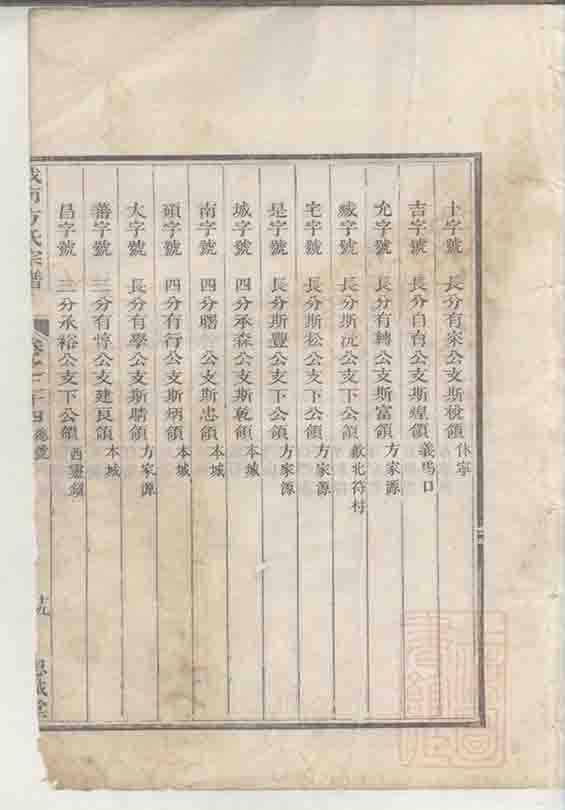 士字號　長分有宋公支斯稅領 休寧
吉字號　長分自台公支斯煌領 義馬口
允字號　長分有轉公支斯富領 方家源
臧字號　長分斯沅公支下公領 歙北符村
宅字號　長分斯松公支下公領 方家源
是字號　長分斯豐公支下公領 方家源
城字號　四分承森公支斯乾領 本城
南字號　四分曙 公支斯忠領 本城
碩字號　四分有行公支斯炳領 本城
大字號　長分有學公支斯晴領 方家源
蕃字號　三分有惇公支建良領 本城
昌字號　三分承裕公支下公領 西靈
城南方氏宗譜 卷之二十四